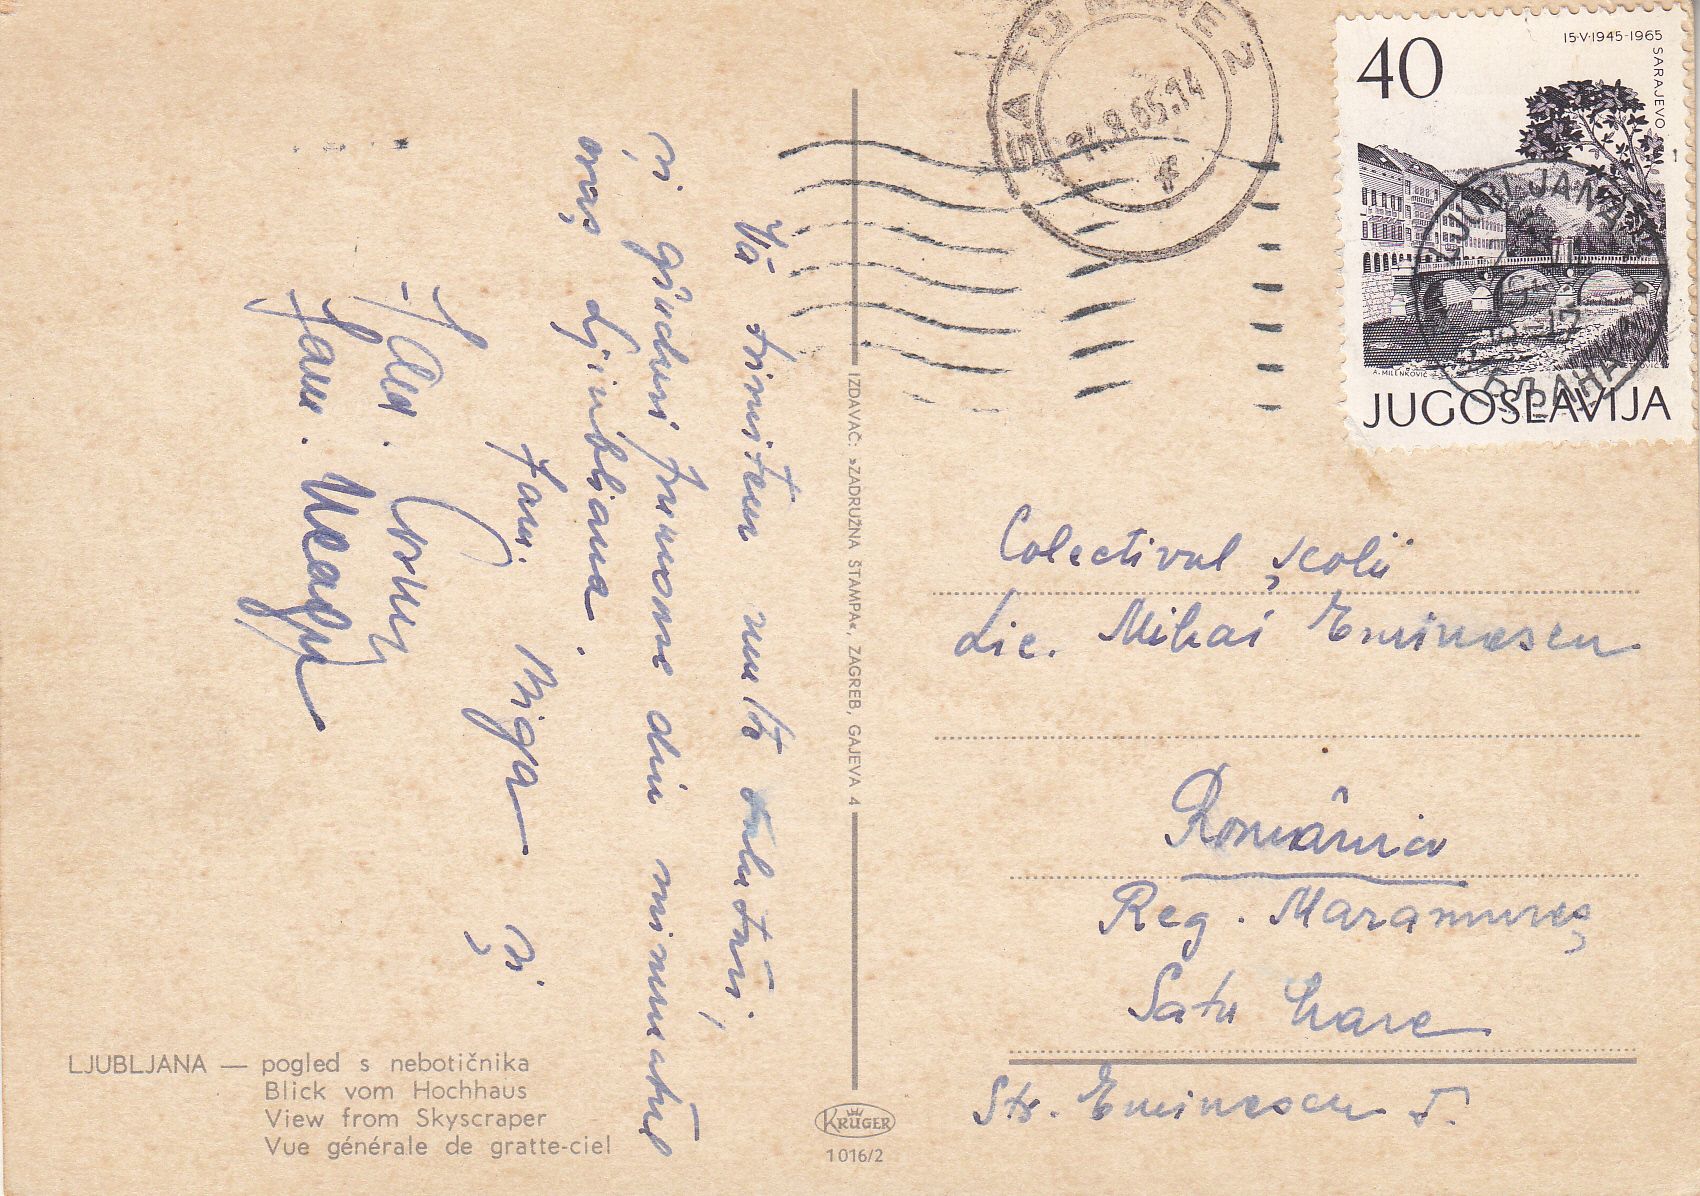 Vă trimitem multe salutări,
și gînduri frumoase din minunatul
oraș Ljiubliana.
Fam. Biga și
Fam.
40
15·V·1945-1965
SARAJEVO
A. MILENKOVIĆ
JUGOSLAVIJA
LJUBLJANA
SATU MARE 2
14.8.65.14
IZDAVAČ: »ZADRUŽNA ŠTAMPA«, ZAGREB, GAJEVA 4
Colectivul școlii
Lic. Mihai Eminescu
România
Reg. Maramureș
Satu Mare
Str. Eminescu
LJUBLJANA — pogled s nebotičnika
Blick vom Hochhaus
View from Skyscraper
Vue générale de gratte-ciel
KRÜGER
1016/2